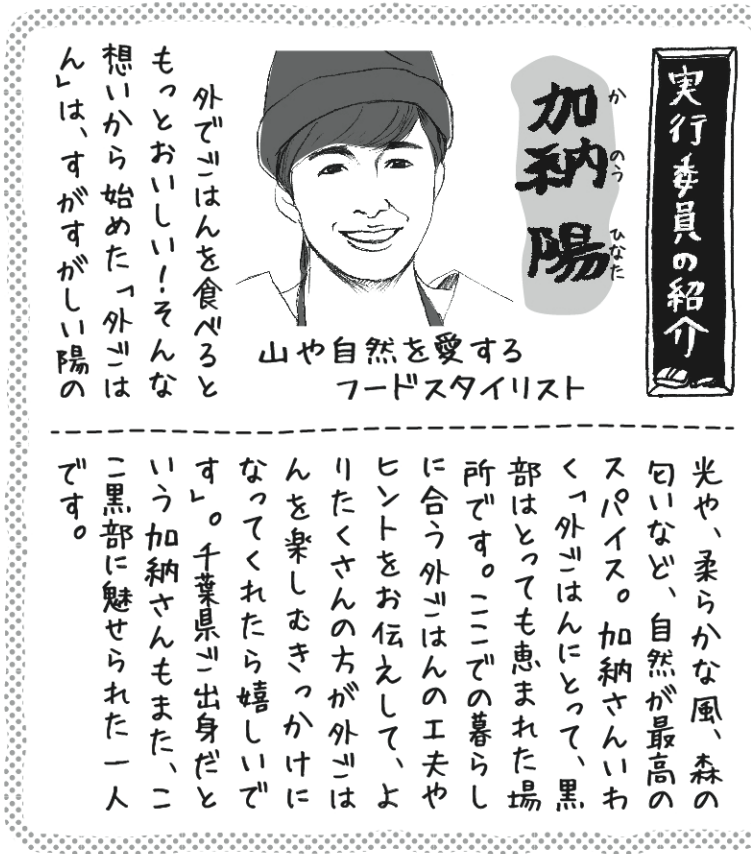 実行委員の紹介
加納 陽
か のう ひなた
山や自然を愛する
フードスタイリスト
外でごはんを食べると
もっとおいしい!そんな
想いから始めた「外ごは
ん」は、すがすがしい陽の
光や、柔らかな風、森の
匂いなど、自然が最高の
スパイス。加納さんいわ
く「外ごはんにとって、黒
部はとっても恵まれた場
所です。ここでの暮らし
に合う外ごはんの工夫や
ヒントをお伝えして、よ
りたくさんの方が外ごは
んを楽しむきっかけに
なってくれたら嬉しいで
す」。千葉県ご出身だと
いう加納さんもまた、こ
こ黒部に魅せられた一人
です。